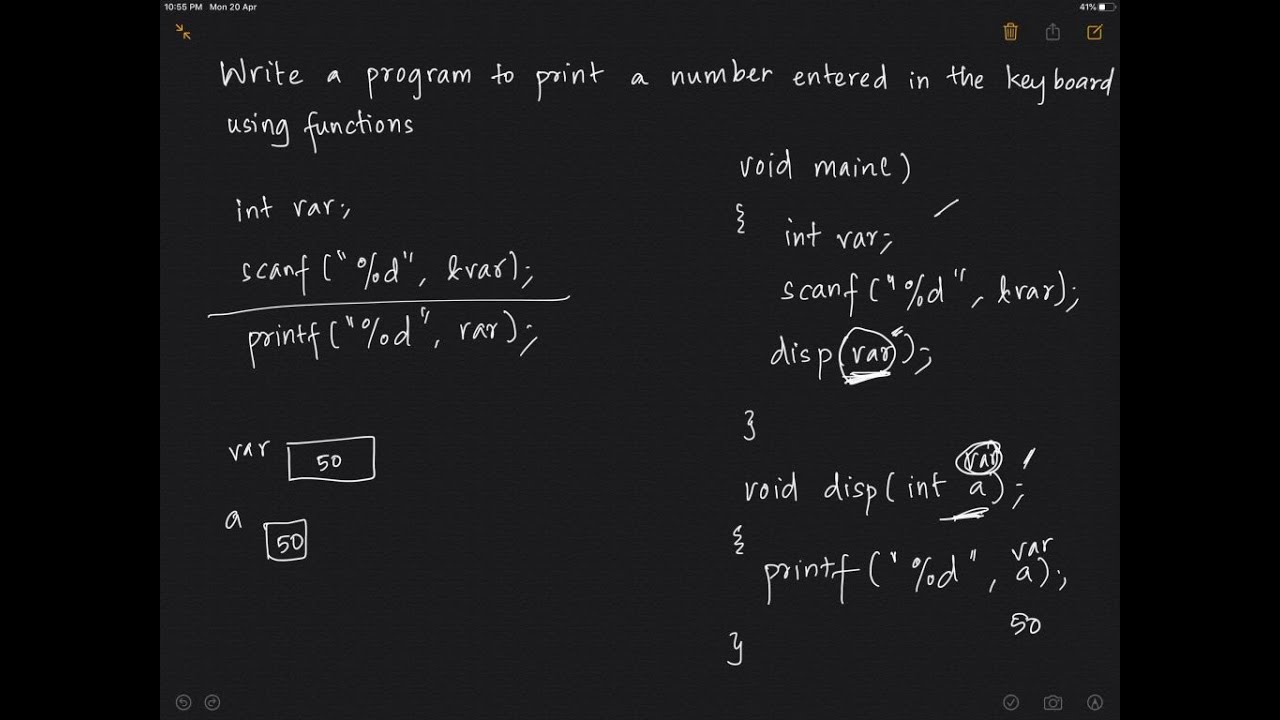 10:55 PM Mon 20 Apr
41%
Write a program to print a number entered in the keyboard
using functions
int var;
scanf("%d", &var);
printf("%d", var);
var 50
a 50
void main()
{
int var;
scanf("%d", &var);
disp(var);
}
var
void disp(int a);
{
var
printf("%d", a);
50
}